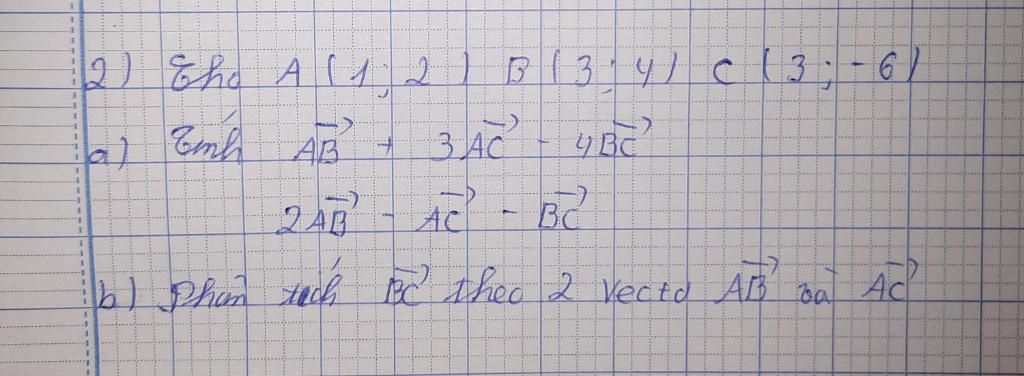 2) Cho A (1; 2) B (3; 4) C (3; -6)
a) Tính \overrightarrow{AB} + 3\overrightarrow{AC} - 4\overrightarrow{BC}
2\overrightarrow{AB} - \overrightarrow{AC} - \overrightarrow{BC}
b) Phân tích \overrightarrow{BC} theo 2 vectơ \overrightarrow{AB} và \overrightarrow{AC}